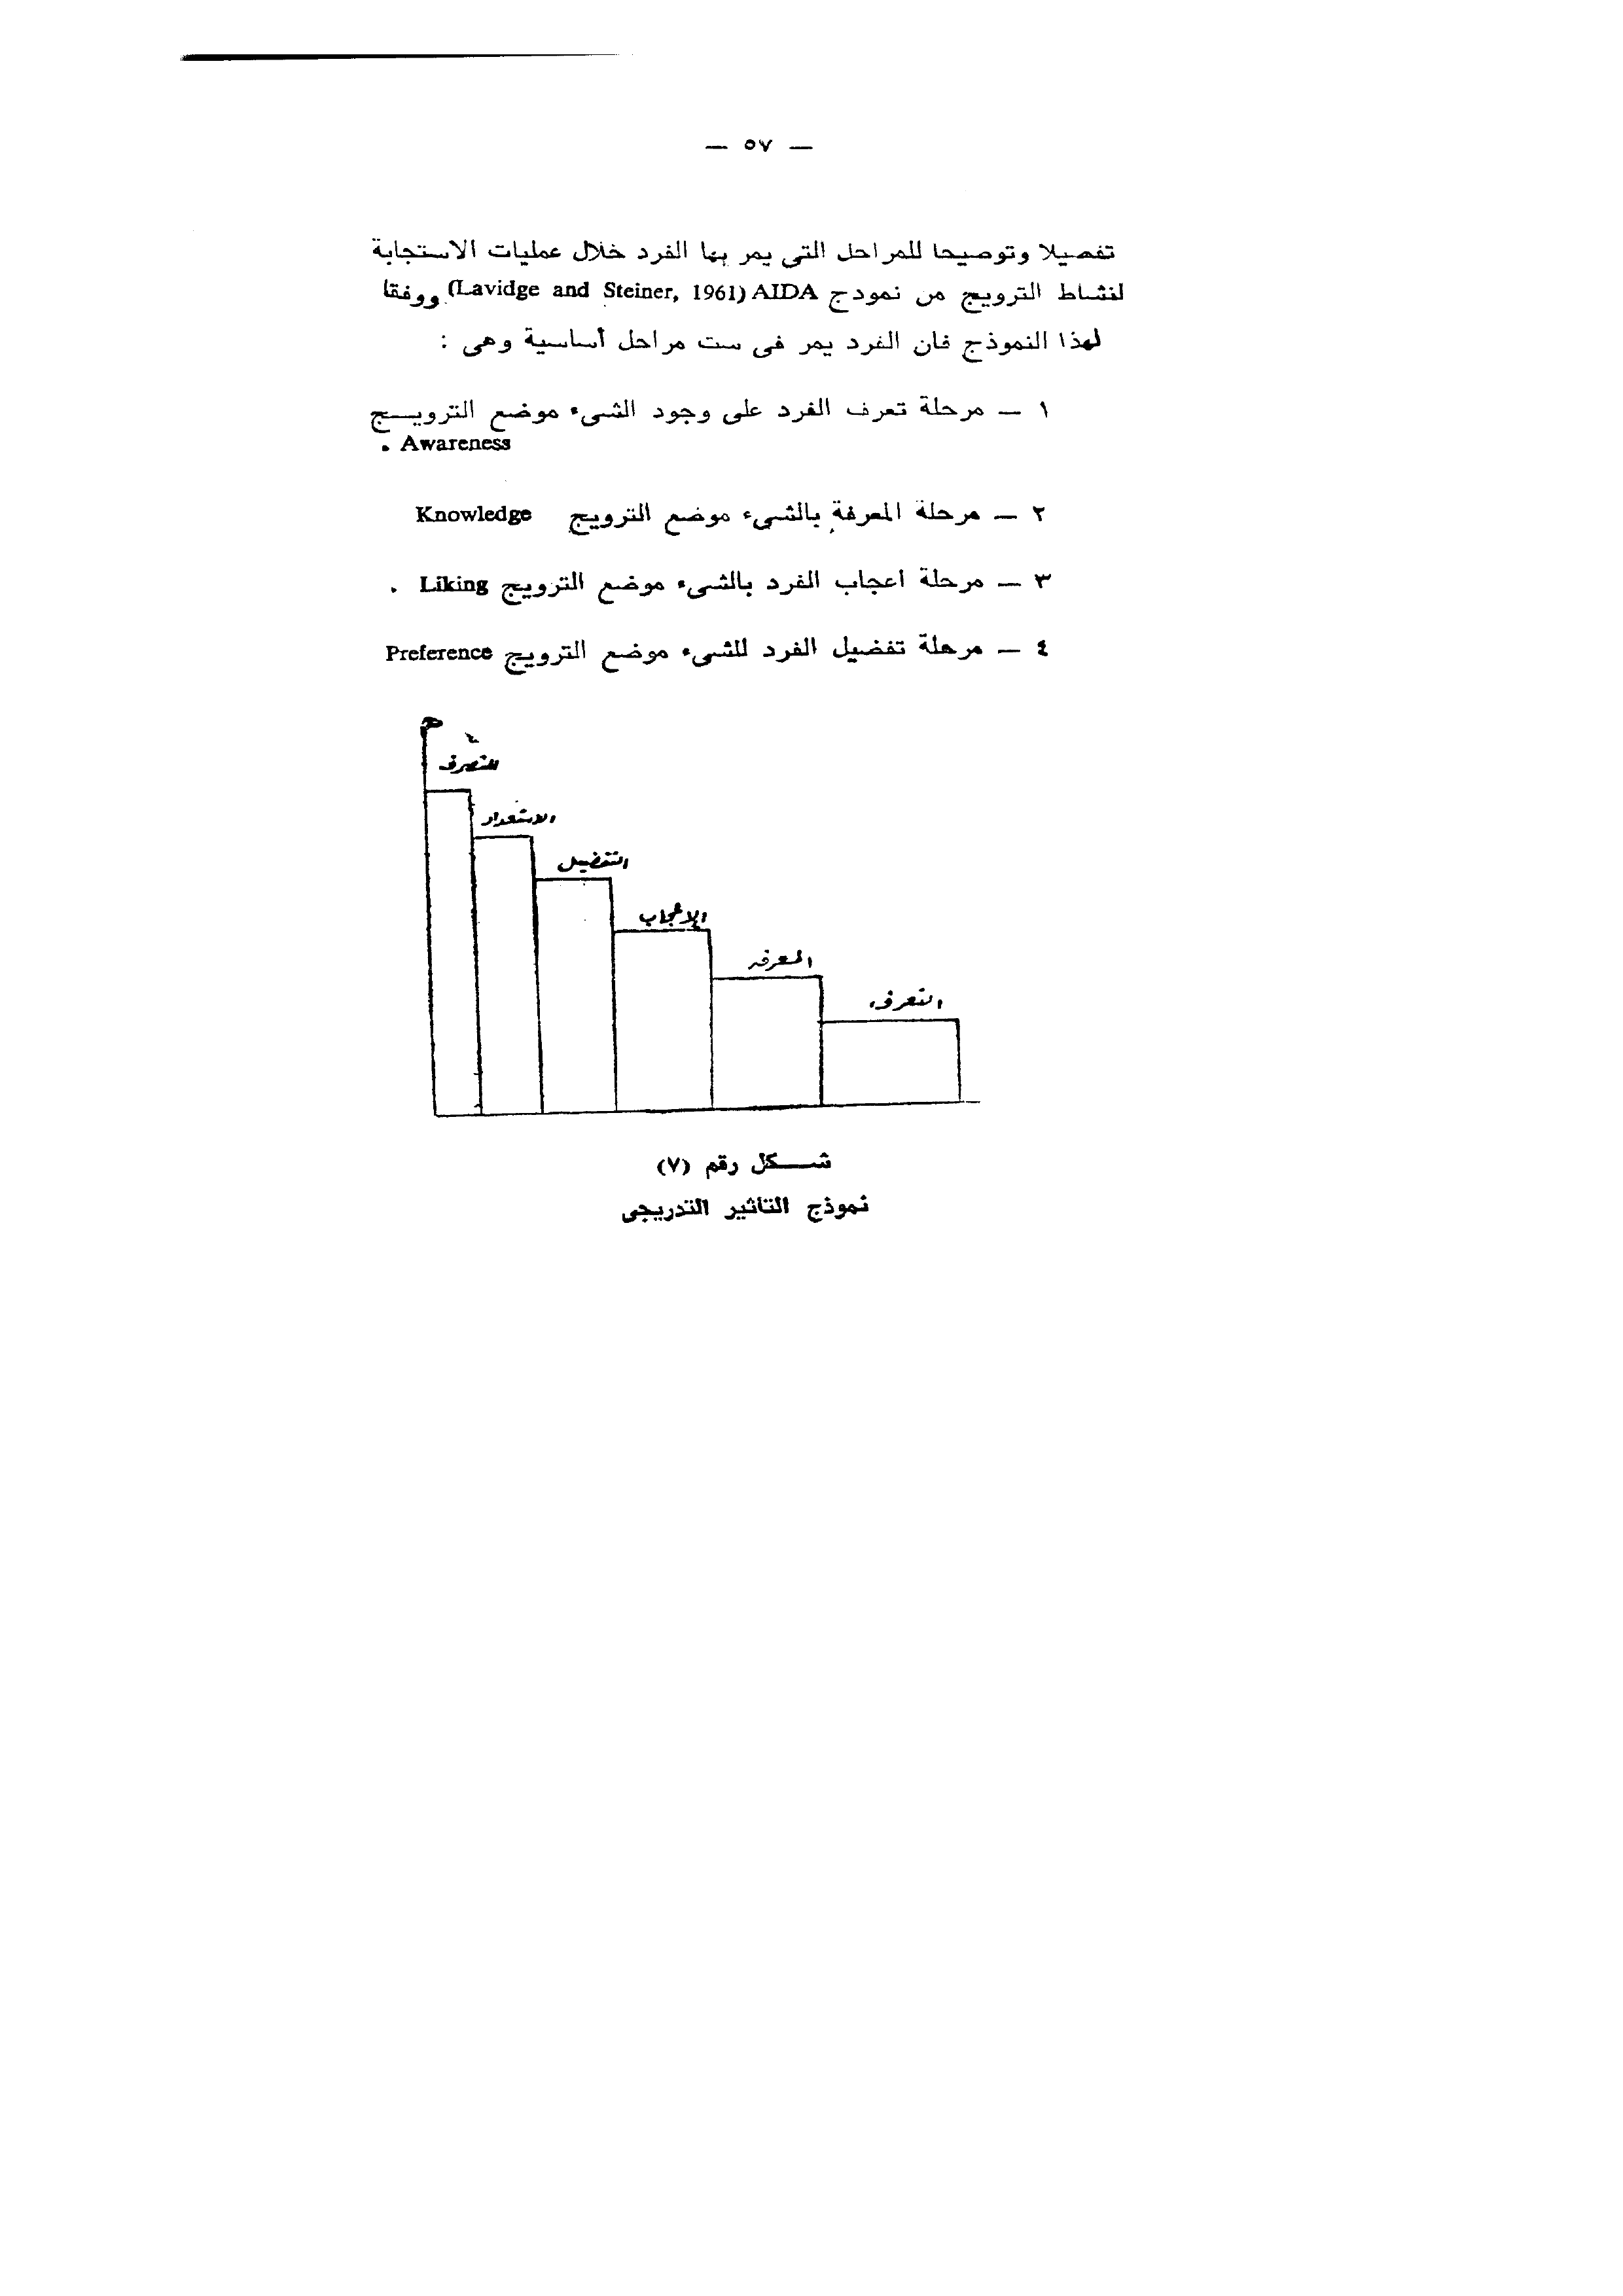 — ٥٧ —
تفصيلا وتوضيحا للمراحل التى يمر بها الفرد خلال عمليات الاستجابة
لنشاط الترويج من نموذج AIDA (Lavidge and Steiner, 1961) ووفقا
لهذا النموذج فان الفرد يمر فى ست مراحل أساسية وهى :
١ — مرحلة تعرف الفرد على وجود الشىء موضع الترويــج
Awareness .
٢ — مرحلة المعرفة بالشىء موضع الترويج Knowledge
٣ — مرحلة اعجاب الفرد بالشىء موضع الترويج Liking .
٤ — مرحلة تفضيل الفرد للشىء موضع الترويج Preference
التصرف
الاستعداد
التفضيل
الإعجاب
المعرفه
التعرف
شــــكل رقم (٧)
نموذج التاثير التدريجى